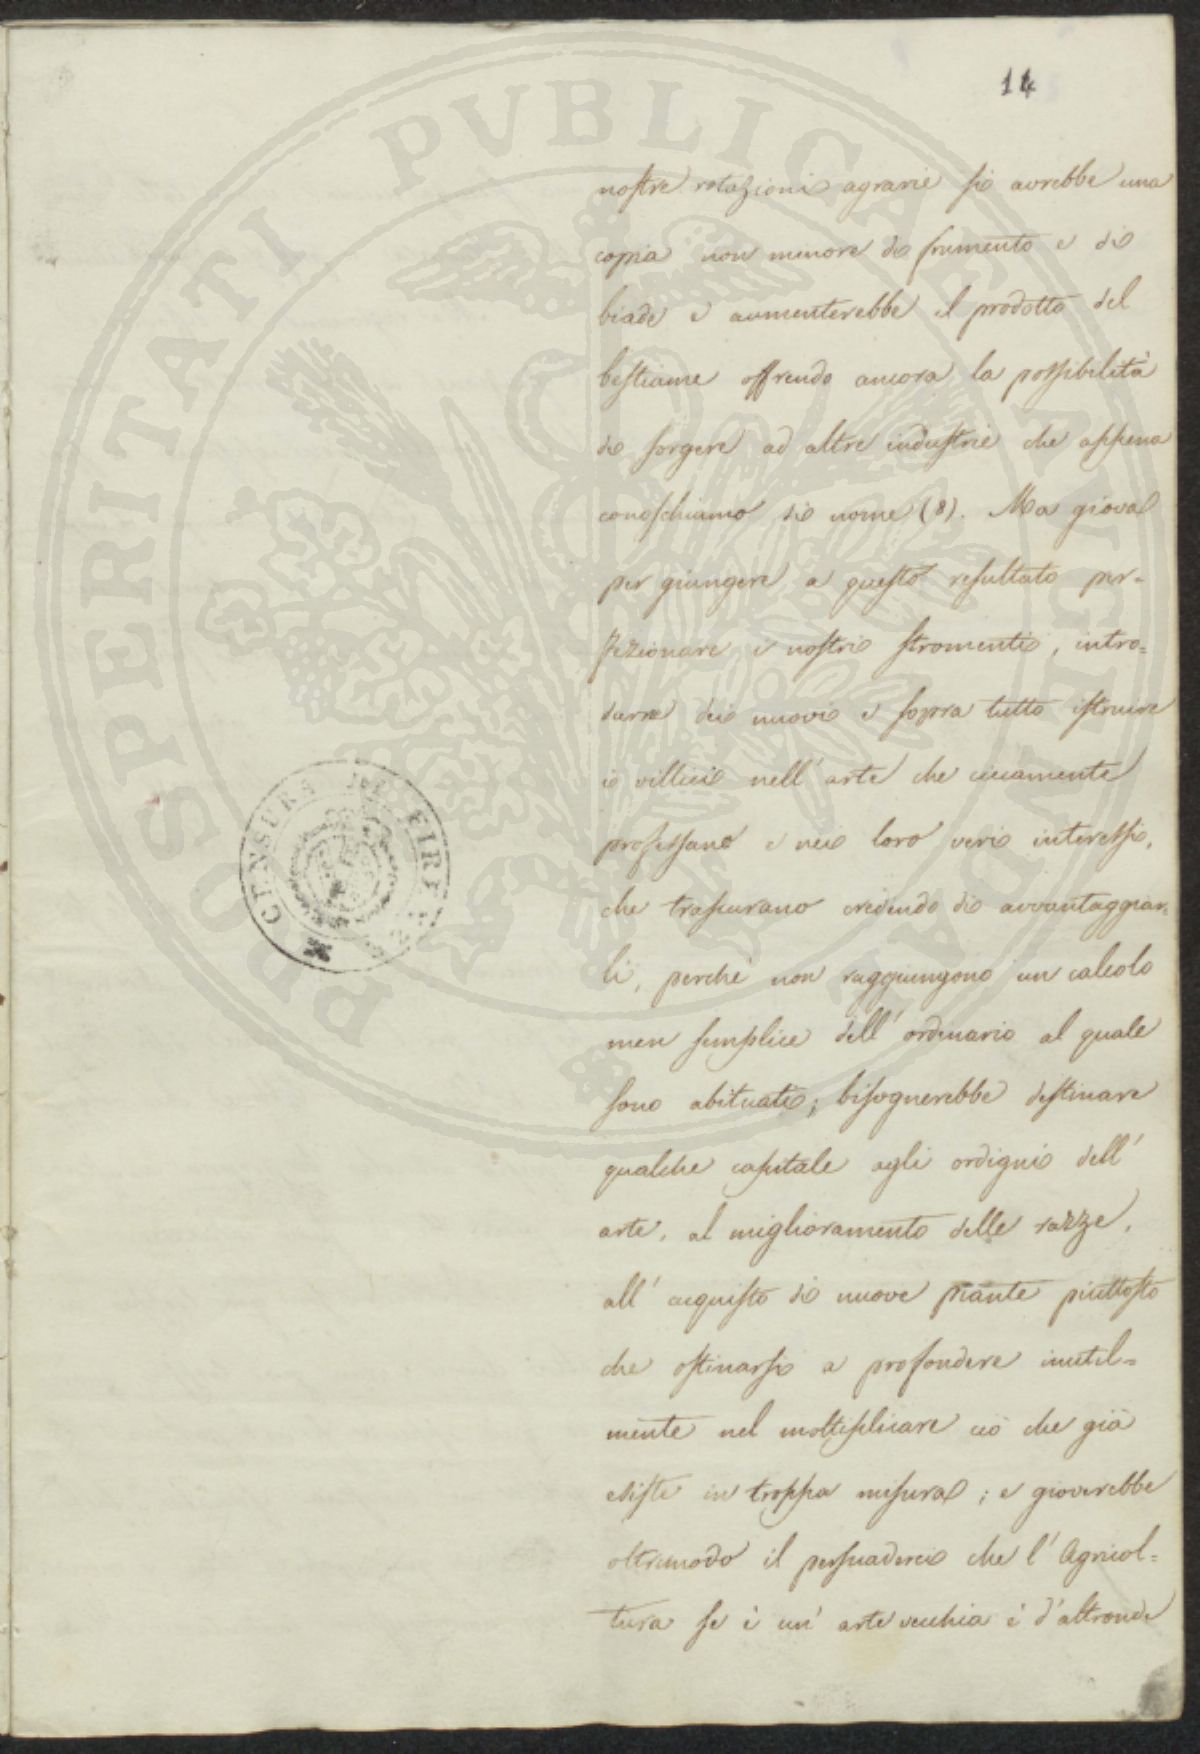 14
nostre rotazioni agrarie si avrebbe una
copia non minore di frumento e di
biade e aumenterebbe il prodotto del
bestiame offrendo ancora la possibilità
di sorgere ad altre industrie che appena
conoschiamo di nome (8). Ma giova
per giungere a questo resultato per-
fezionare i nostri stromenti, intro=
durre dei nuovi e sopra tutto istruire
i villici nell' arte che ciecamente
professano e nei loro veri interessi,
che trascurano credendo di avvantaggiar=
li, perchè non raggiungono un calcolo
men semplice dell' ordinario al quale
sono abituati; bisognerebbe destinare
qualche capitale agli ordigni dell'
arte, al miglioramento delle razze,
all' acquisto di nuove piante piuttosto
che ostinarsi a profondere inutil=
mente nel moltiplicare ciò che già
esiste in troppa misura; e gioverebbe
oltremodo il persuaderci che l' Agricol=
tura se è un' arte vecchia è d'altronde
CENSURA DI FIRE
PROSPERITATI PUBLICAE AUGENDAE